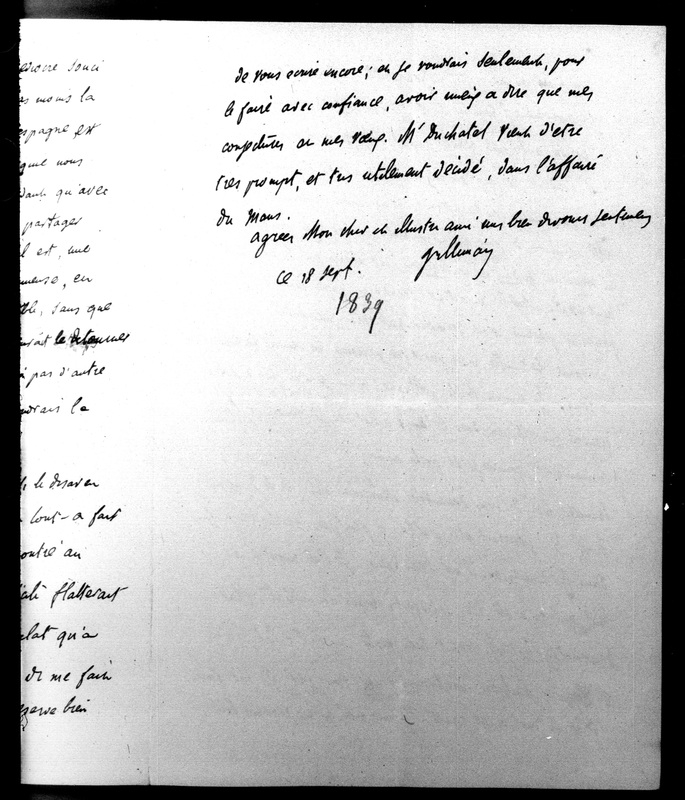 ediocre souci
es moins la
espagne est
que nous
dant qu'avec
partager
l est, une
meuse, en
ble, sans que
le detourner
i pas d'autre
udrais le
le desaveu
tout-a fait
ontré au
flatterait
qu'a
de me faire
eserve bien
de vous ecrire encore; et je voudrais seulement, pour
le faire avec confiance, avoir a dire que mes
conjectures ou mes voeux. Mr Duchatel vient d'etre
tres prompt, et tres utilement décidé, dans l'affaire
du Mans.
agréez Mon cher et illustre ami mes bien devoués sentimens
Villemain
ce 18 sept.
1839